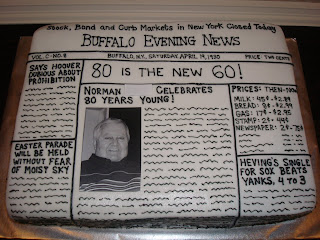 Stock, Bond and Curb Markets in New York Closed Today
BUFFALO EVENING NEWS
VOL. C-NO. 8
BUFFALO, N.Y. SATURDAY, APRIL 19, 1930
PRICE TWO CENTS
SAYS HOOVER
DUBIOUS ABOUT
PROHIBITION
EASTER PARADE
WILL BE HELD
WITHOUT FEAR
OF MOIST SKY
80 IS THE NEW 60!
NORMAN CELEBRATES
80 YEARS YOUNG!
PRICES: THEN-NOW
MILK: 45¢-$2.89
BREAD: 8¢-$2.99
GAS: 17¢-$2.95
STAMP: 2¢-44¢
NEWSPAPER: 2¢-75¢
HEVING'S SINGLE
FOR SOX BEATS
YANKS, 4 TO 3